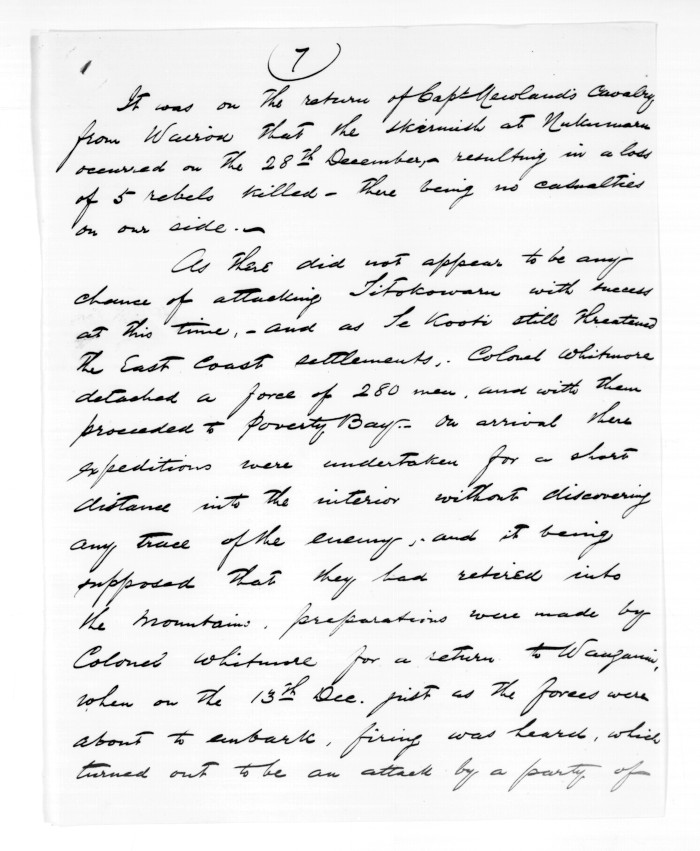 7
It was on the return of Capt Newland's Cavalry
from Wairoa that the skirmish at Nukumaru
occurred on the 28th December, - resulting in a loss
of 5 rebels killed - there being no casualties
on our side. -
As there did not appear to be any
chance of attacking Titokowaru with success
at this time, - and as Te Kooti still threatened
the East Coast settlements, - Colonel Whitmore
detached a force of 280 men, and with them
proceeded to Poverty Bay. - On arrival there
expeditions were undertaken for a short
distance into the interior without discovering
any trace of the enemy, - and it being
supposed that they had retired into
the mountains, preparations were made by
Colonel Whitmore for a return to Wanganui,
when on the 13th Dec. just as the forces were
about to embark, firing was heard, which
turned out to be an attack by a party of